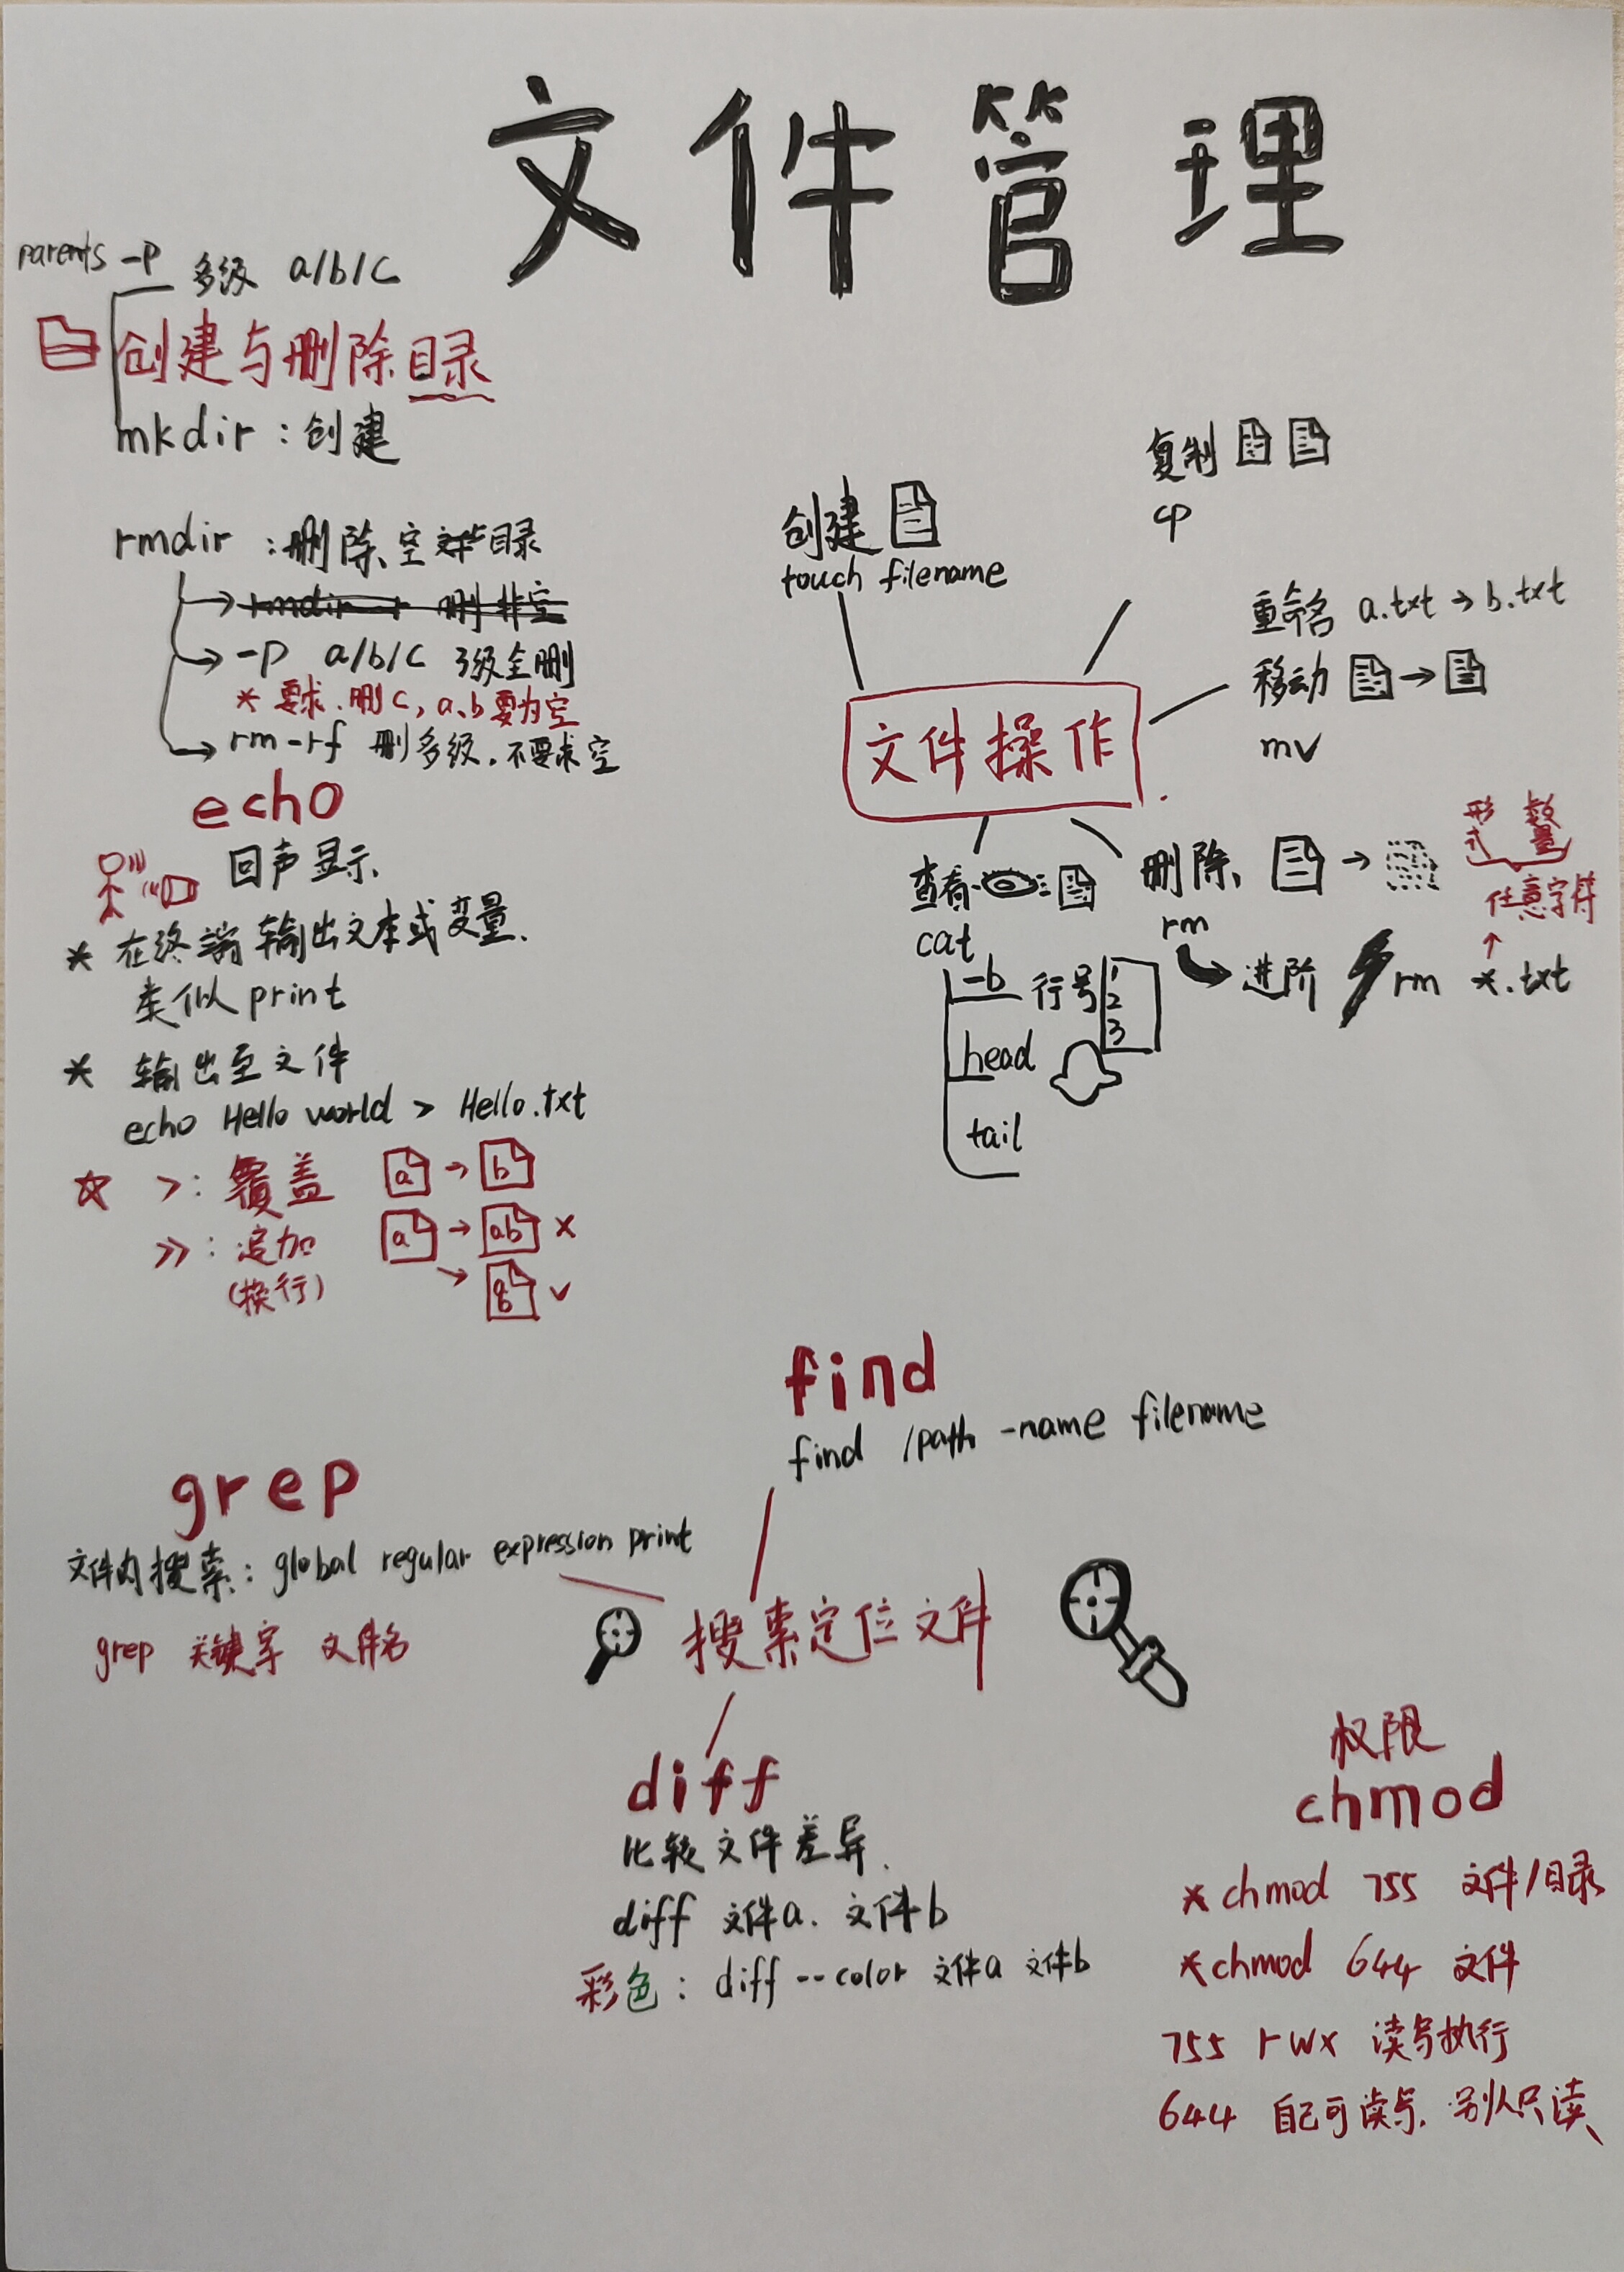 文件管理
parents -p 多级 a/b/c
创建与删除目录
mkdir：创建
rmdir：删除空文件目录
rmdir -r 删非空
-p a/b/c 3级全删
* 要求．删c，a、b要为空
rm -rf 删多级．不要求空
echo
回声显示
* 在终端输出文本或变量．
类似print
* 输出至文件
echo Hello world > Hello.txt
☆ >：覆盖 a → b
>>：追加 a → ab ×
(换行) → a b √
创建
touch filename
复制
cp
重命名 a.txt → b.txt
移动 →
mv
文件操作
查看
cat
-b 行号 1 2 3
head
tail
删除 →
rm
进阶 rm *.txt
形式 数量
任意字符
↑
find
find /path -name filename
grep
文件内搜索：global regular expression print
grep 关键字 文件名
搜索定位文件
diff
比较文件差异．
diff 文件a. 文件b
彩色：diff --color 文件a 文件b
权限
chmod
* chmod 755 文件/目录
* chmod 644 文件
755 rwx 读写执行
644 自己可读写．别人只读